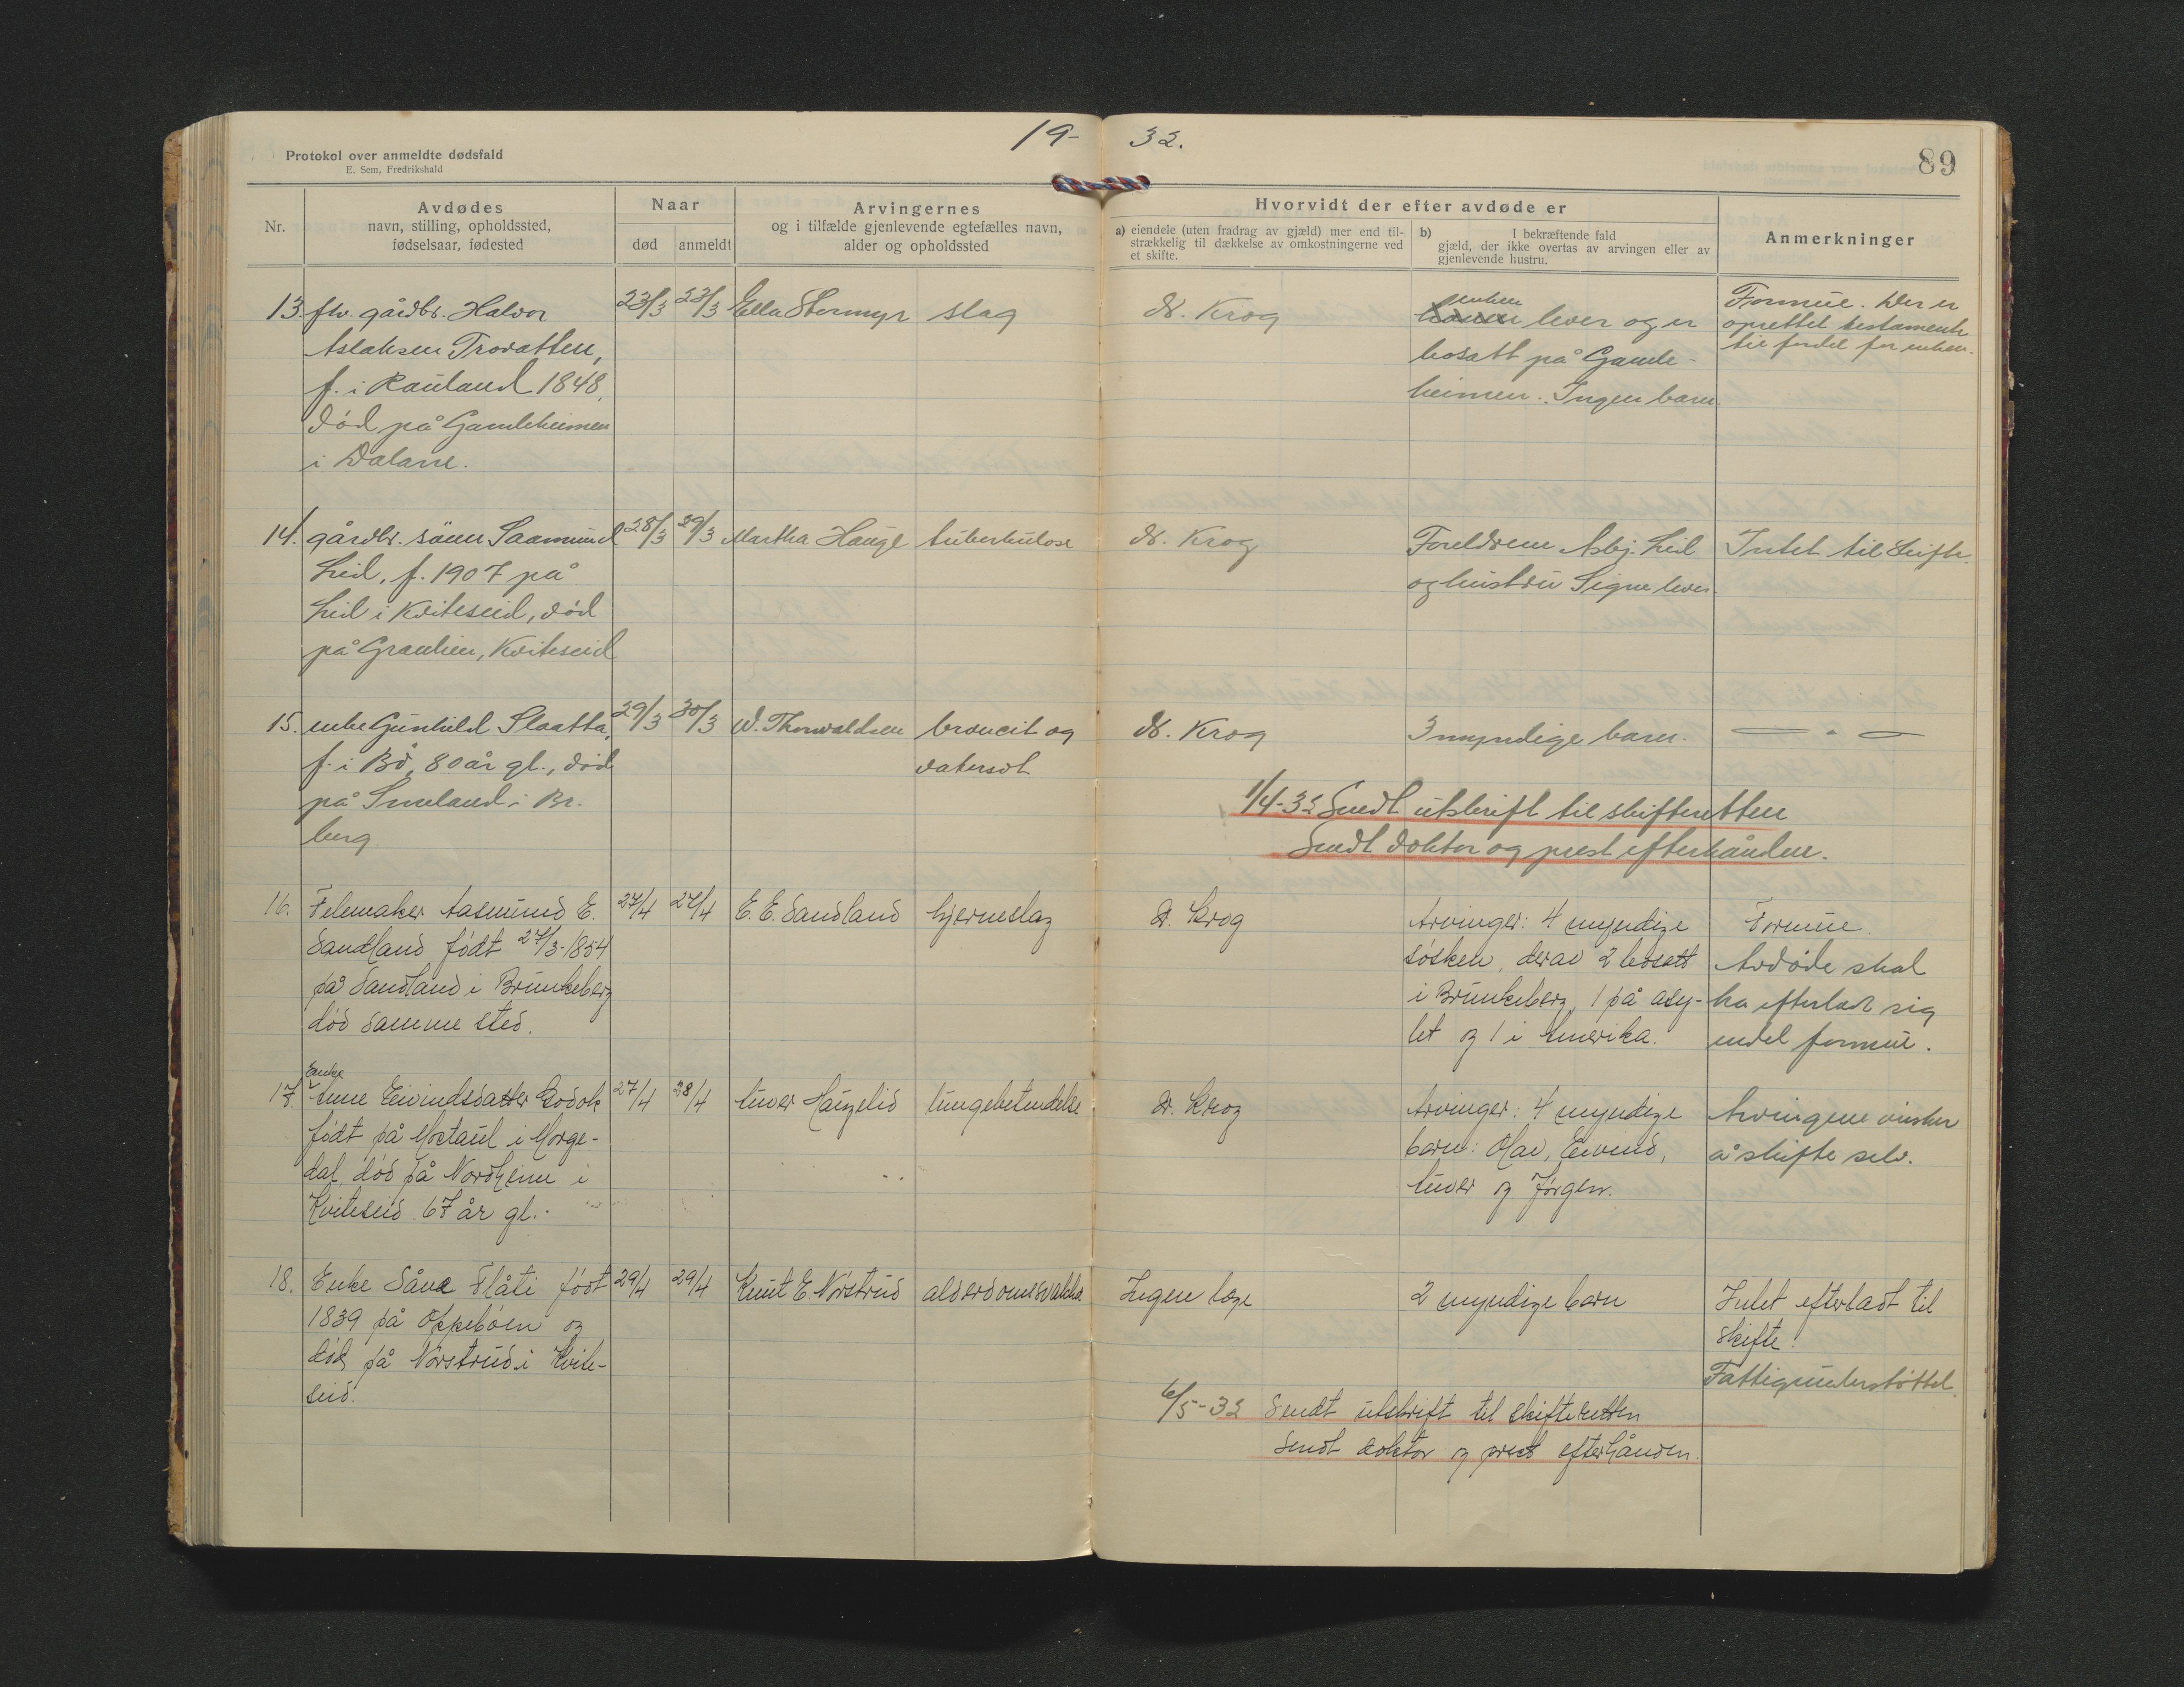 19- 32.
Protokol over anmeldte dødsfald
E. Sem, Fredrikshald
89
Nr.
Avdødes
navn, stilling, opholdssted,
fødselsaar, fødested
Naar
død anmeldt
Arvingernes
og i tilfælde gjenlevende egtefælles navn,
alder og opholdssted
Hvorvidt der efter avdøde er
a) eiendele (uten fradrag av gjæld) mer end til-
strækkelig til dækkelse av omkostningerne ved
et skifte.
b) I bekræftende fald
gjæld, der ikke overtas av arvingen eller av
gjenlevende hustru.
Anmerkninger
13. fhv. gårdbr. Halvor
Aslaksen Trovatten,
f. i Rauland 1848,
død på Gamleheimen
i Dalane.
23/3 23/3 Ella Stormyr slag
Dr. Krog
enken
lever og er
bosatt på Gamle-
heimen. Ingen barn
Formue. Der er
oprettet testamente
til fordel for enken.
14. gårdbr. sønn Saamund
Lid, f. 1907 på
Lid i Kviteseid, død
på Granlien, Kviteseid
28/3 29/3 Martha Hauge tuberkulose
Dr. Krog
Foreldrene Asbj. Lid
og hustru Signe lever
Intet til skifte.
15. enke Gunhild Slaatta,
f. i Bø, 80 år gl., død
på Smeland i Br.
berg
29/3 30/3 D. Thorvaldsen broncit og
vatersot
Dr. Krog
3 myndige barn.
— " —
1/4-32 Sendt utskrift til skifteretten
Sendt doktor og prest efterhånden.
16. Felemaker Aasmund E.
Sandland født 27/3-1854
på Sandland i Brunkeberg
død samme sted.
27/4 27/4 E. E. Sandland hjerneslag
Dr. Krog
Arvinger: 4 myndige
søsken, derav 2 bosatt
i Brunkeberg, 1 på asy-
let og 1 i Amerika.
Formue.
Avdøde skal
ha efterladt sig
endel formue.
17. Enke
Anne Eivindsdatter
født på i Morge-
dal, død på Nordheim i
Kviteseid 67 år gl.
27/4 28/4 Haugelid lungebetendelse
Dr. Krog
Arvinger: 4 myndige
barn: Olav, Eivind,
og Jørgen.
Arvingene ønsker
å skifte selv.
18. Enke Flåti født
1839 på Oppebøen og
død på Nørstrud i Kvite-
seid.
29/4 29/4 Knut E. Nørstrud alderdomsvakhet
Ingen læge
2 myndige barn
Intet efterladt til
skifte.
Fattigunderstøttet.
6/5-32 Sendt utskrift til skifteretten
Sendt doktor og prest efterhånden.